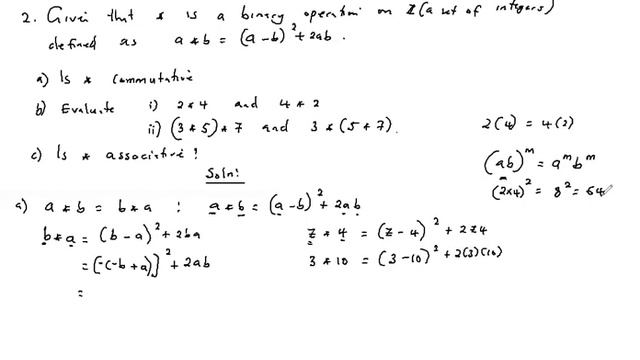 2. Given that * is a binary operation on Z (a set of integers)
defined as a * b = (a - b)² + 2ab.
a) Is * commutative
b) Evaluate i) 2 * 4 and 4 * 2
ii) (3 * 5) * 7 and 3 * (5 * 7).
c) Is * associative?
2(4) = 4(2)
(ab)^m = a^m b^m
(2x4)² = 8² = 64
Soln:
a) a * b = b * a : a * b = (a - b)² + 2ab
b * a = (b - a)² + 2ba
= [-(-b + a)]² + 2ab
=
z * 4 = (z - 4)² + 2z4
3 * 10 = (3 - 10)² + 2(3)(10)